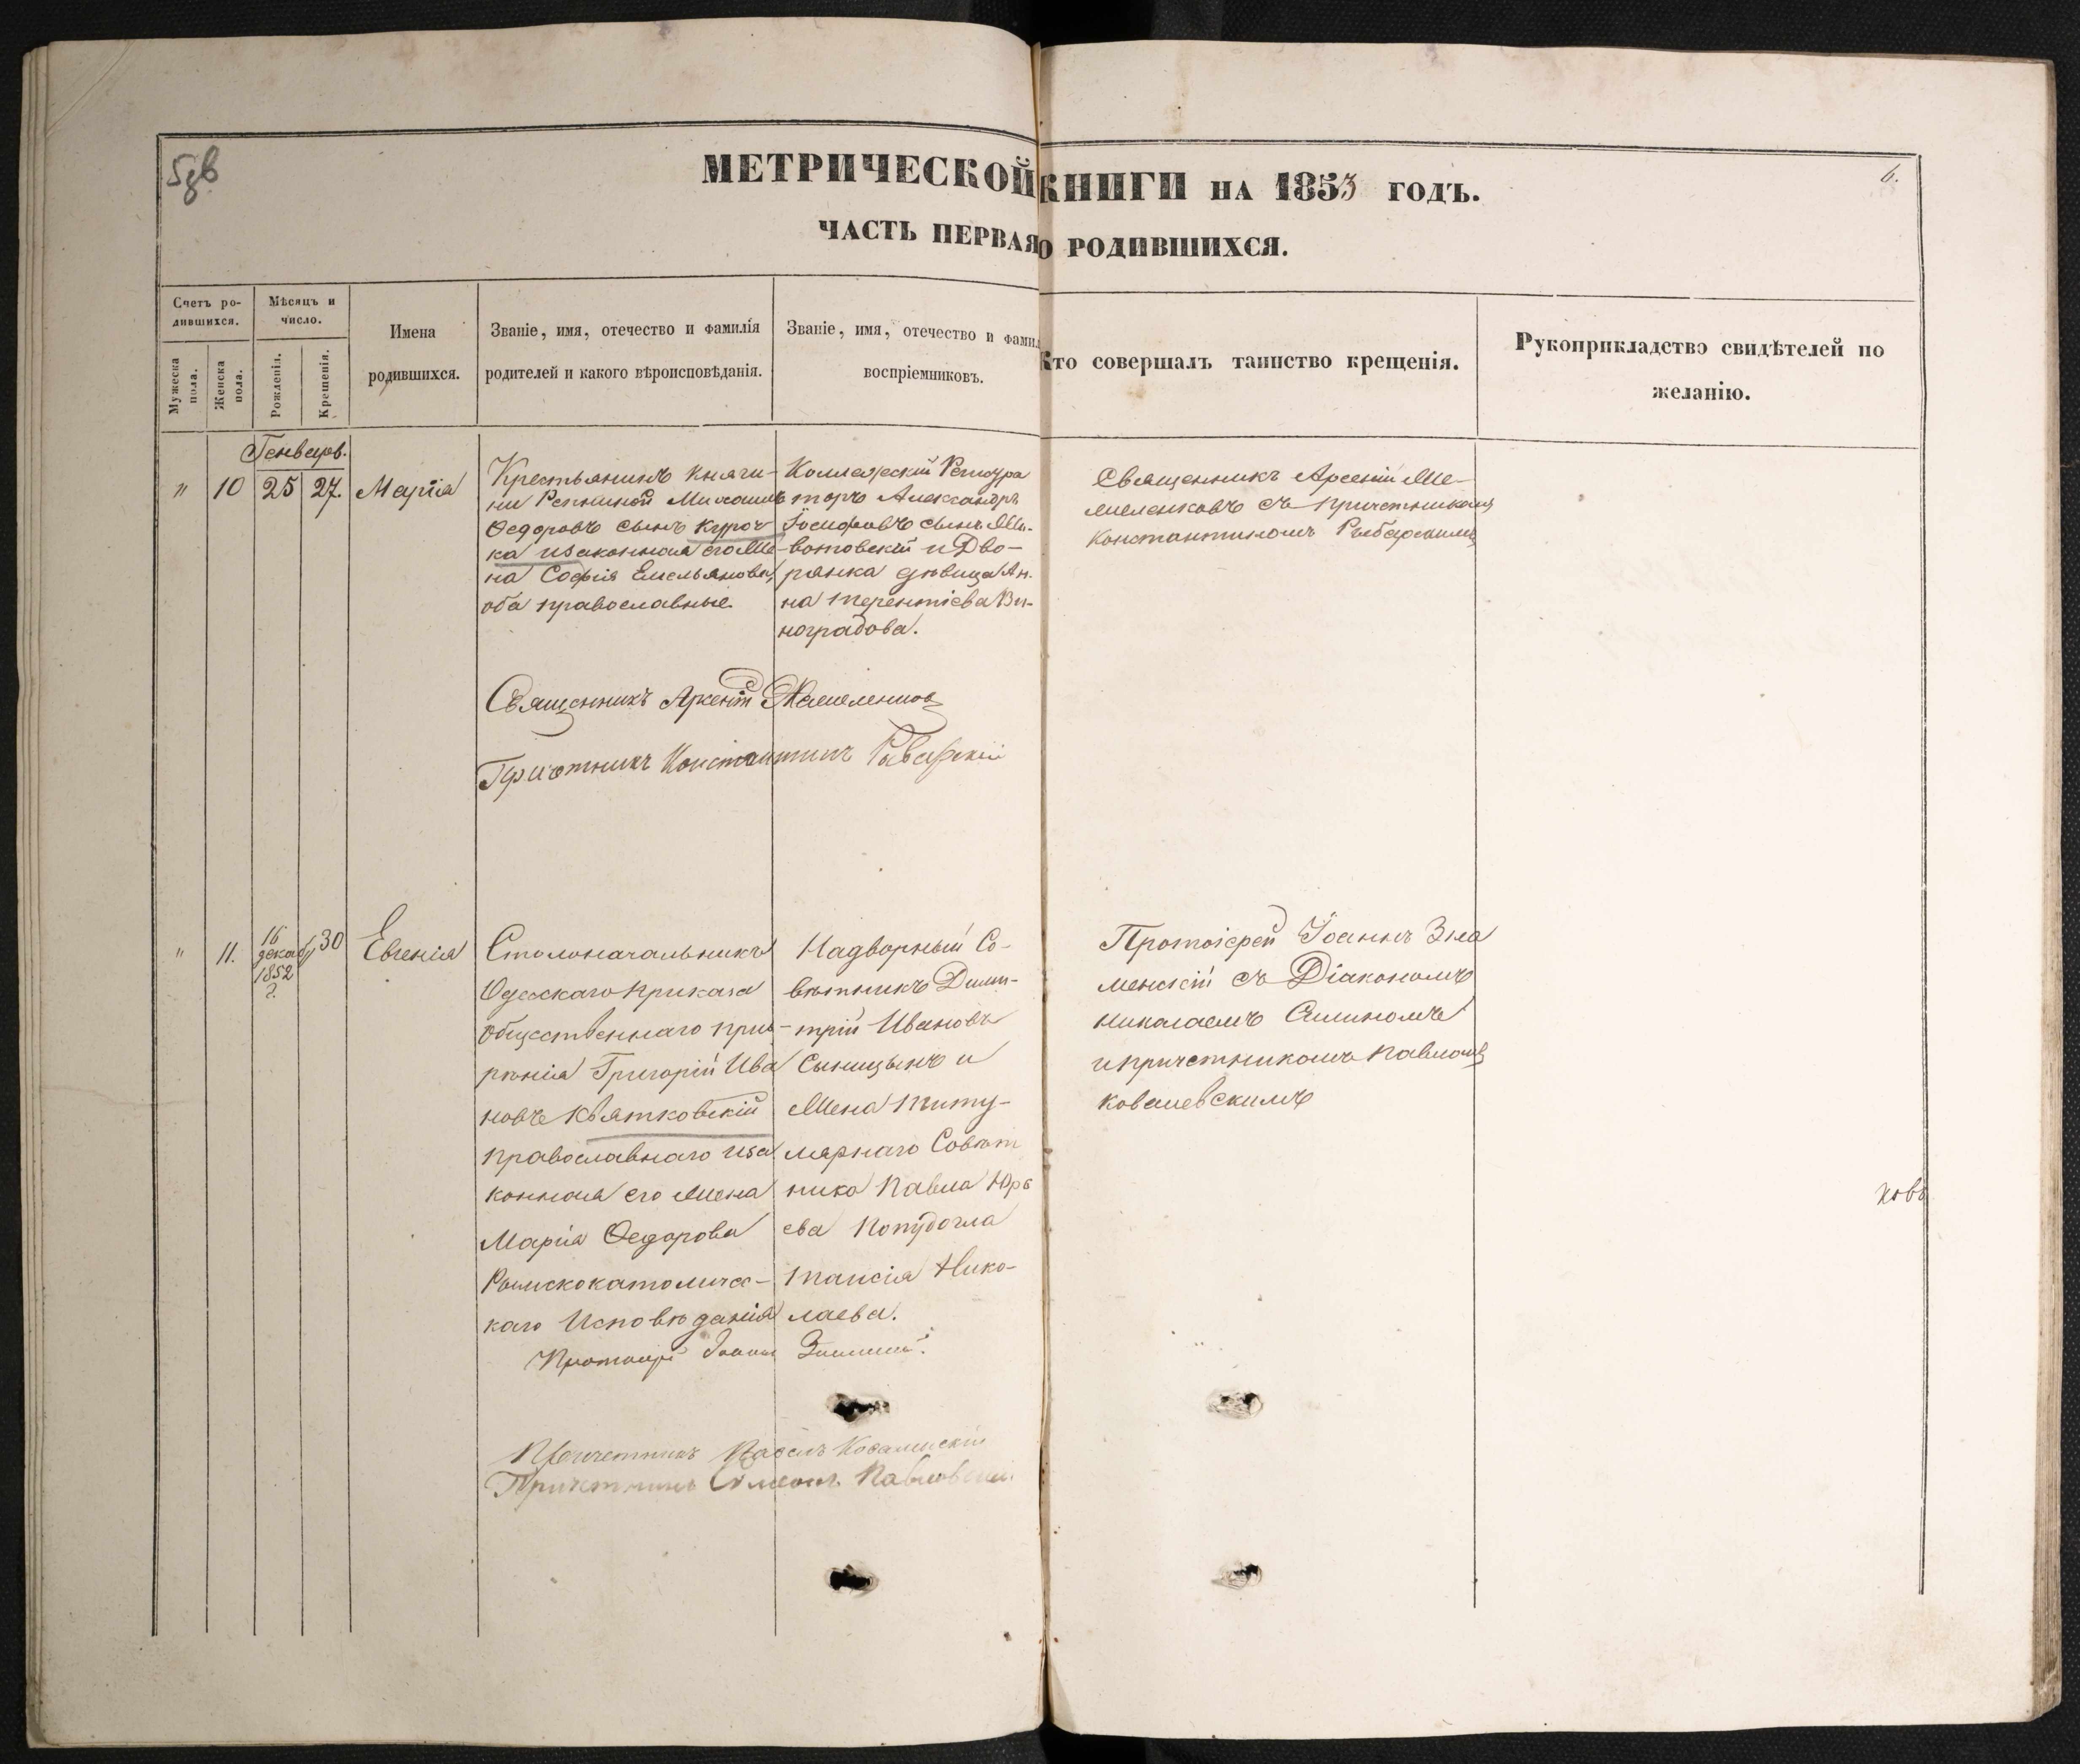 МЕТРИЧЕСКОЙ КНИГИ НА 1853 ГОДЪ.
6.
ЧАСТЬ ПЕРВАЯ О РОДИВШИХСЯ.
Счетъ ро-
дившихся.
Мужеска пола.
Женска пола.
Мѣсяцъ и
число.
Рожденія.
Крещенія.
Имена
родившихся.
Званіе, имя, отечество и фамилія
родителей и какого вѣроисповѣданія.
Званіе, имя, отечество и фамил
воспріемниковъ.
Кто совершалъ таинство крещенія.
Рукоприкладство свидѣтелей по
желанію.
Генвар.
" 10 25 27. Марія
Крестьянинъ Княги-
ни Репниной Михаилъ
Ѳедоровъ сынъ Куроч
ка изаконная его Же
на Софія Емельянова,
оба православные.
Коллежскій Регистра
торъ Александръ
Іосифовъ сынъ
вотовскій и Дво-
рянка дѣвица Ан-
на Терентіева Ви-
ноградова.
Священникъ Арсеній
съ причетникомъ
Константиномъ
Священникъ Арсеній
Причотникъ Константинъ
" 11. 16 декаб 1852 г. 30 Евгенія
Столоначальникъ
Одесскаго приказа
общественнаго приз-
рѣнія Григорій Ива
новъ Квятковскій
православнаго иза
конная его Жена
Марія Ѳедорова
Римскокатоличес-
каго Исповѣданія
Надворный Со-
вѣтникъ Дими-
трій Ивановъ
Сыницынъ и
Жена титу-
лярнаго Совѣт
ника Павла Юрь
ева
Таисія Нико-
лаева.
Протоіерей Іоаннъ Зна
менскій съ Діакономъ
Николаемъ
и причетникомъ Павломъ
Ковалевскимъ
ковъ
Протоіерей Іоаннъ
Причетникъ Павелъ Ковалевскій
Причетникъ Симеонъ Павловскій